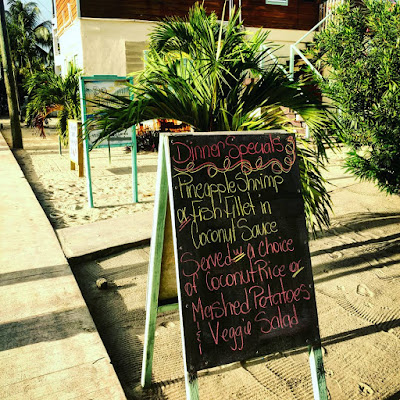 Dinner Specials
Pineapple Shrimp
or Fish Fillet in
Coconut Sauce
Served w/ a choice
of Coconut Rice or
Mashed Potatoes
& Veggie Salad